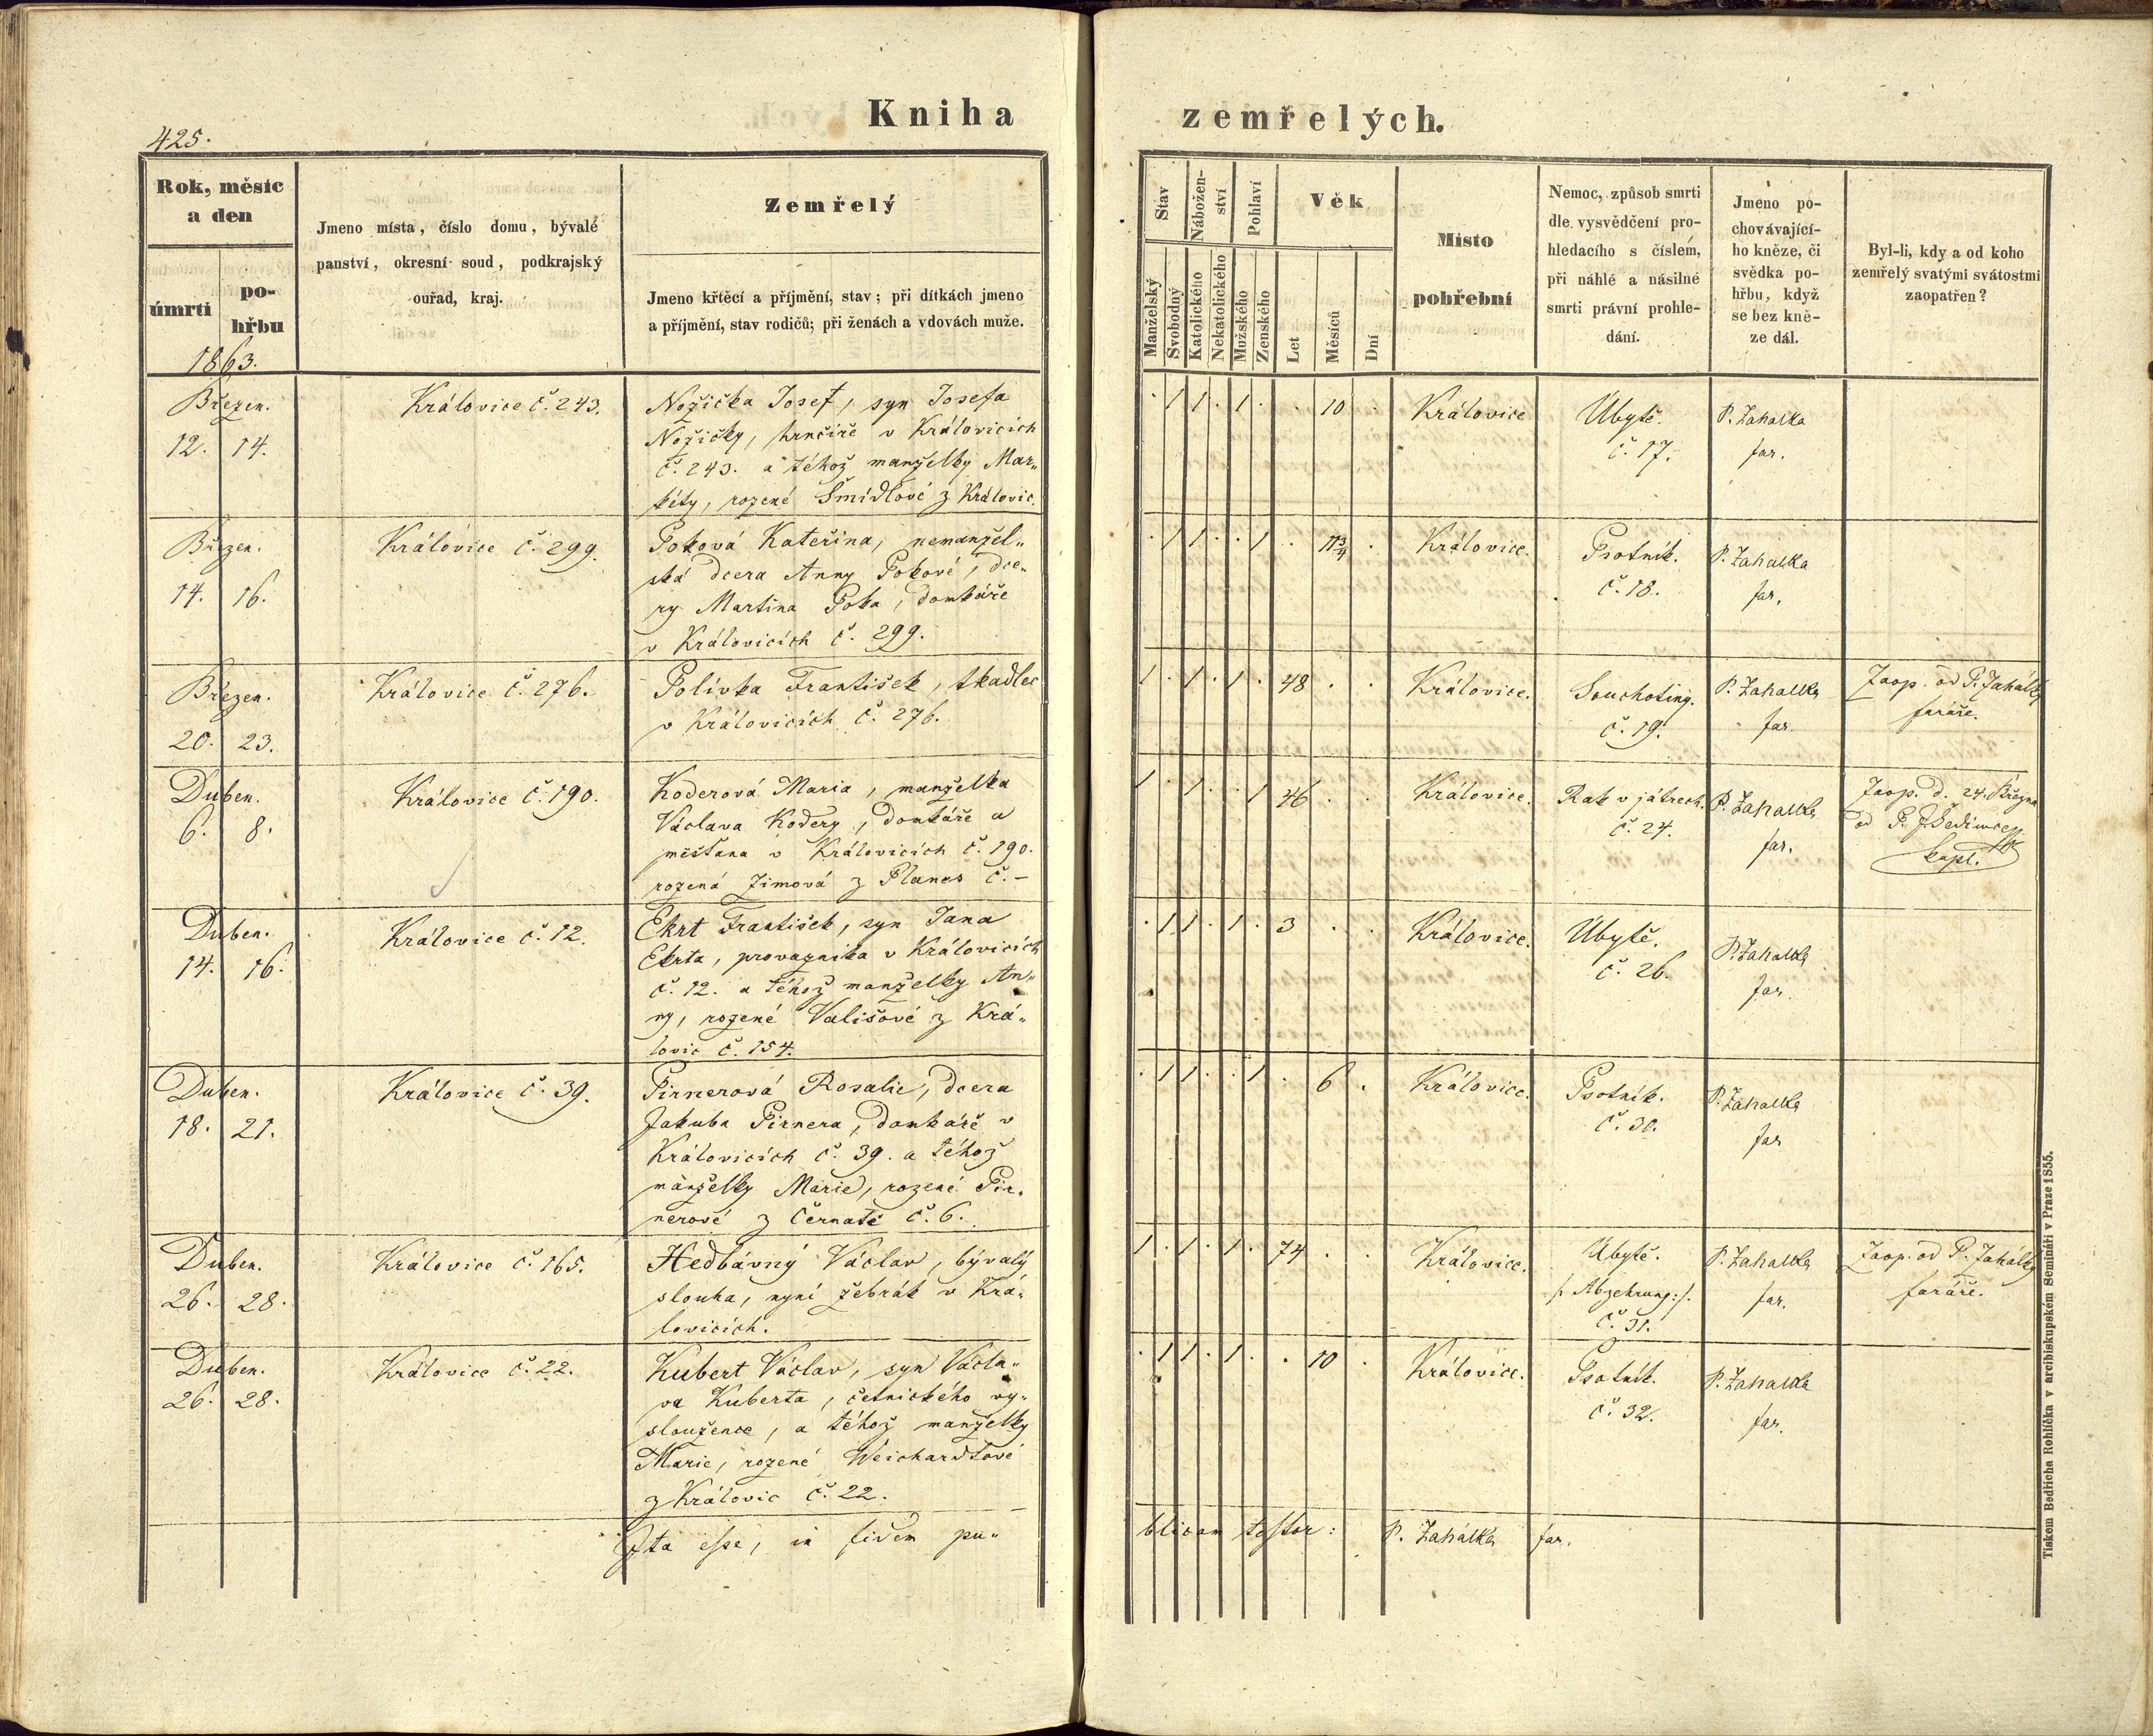 425.
Kniha zemřelých.
Rok, měsíc
a den
úmrtí
po-
hřbu
Jmeno místa, číslo domu, bývalé
panství, okresní soud, podkrajský
ouřad, kraj.
Zemřelý
Jmeno křtěcí a příjmění, stav; při dítkách jmeno
a příjmění, stav rodičů; při ženách a vdovách muže.
Stav
Manželský
Svobodný
Nábožen-
ství
Katolického
Nekatolického
Pohlaví
Mužského
Ženského
Věk
Let
Měsíců
Dní
Místo
pohřební
Nemoc, způsob smrti
dle vysvědčení pro-
hledacího s číslem,
při náhlé a násilné
smrti právní prohle-
dání.
Jmeno po-
chovávající-
ho kněze, či
svědka po-
hřbu, když
se bez kně-
ze dál.
Byl-li, kdy a od koho
zemřelý svatými svátostmi
zaopatřen?
1863.
Březen.
12. 14.
Královice č. 243.
Nožička Josef, syn Josefa
Nožičky, hrnčíře v Královicích
č. 243. a téhož manželky Mar„
kéty, rozené Šmídlové z Královic.
. 1 1 . 1 . . 10 .
Královice
Úbytě.
č. 17.
P. Zahalka
far.
Březen.
14. 16.
Královice č. 299.
Poková Kateřina, nemanžel„
ská dcera Anny Pokové, dce„
ry Martina Poka, domkáře
v Královicích č. 299.
. 1 1 . . 1 . 11 3/4 .
Královice.
Psotník.
č. 18.
P. Zahalka
far.
Březen.
20. 23.
Královice č. 276.
Polívka František, tkadlec
v Královicích č. 276.
1 . 1 . 1 . 48 . .
Královice.
Souchotiny.
č. 19.
P. Zahalka
far.
Zaop. od P. Zahálky
faráře.
Duben.
6. 8.
Královice č. 190.
Koderová Maria, manželka
Václava Kodery, domkáře a
měšťana v Královicích č. 190.
rozená Zimová z Planes č. –
1 . 1 . . 1 46 . .
Královice.
Rak v játrech.
č. 24.
P. Zahalka
far.
Zaop. d. 24. Března
od P.
kapl.
Duben.
14. 16.
Královice č. 12.
Ekrt František, syn Jana
Ekrta, provazníka v Královicích
č. 12. a téhož manželky An„
ny, rozené Vališové z Krá„
lovic č. 154.
. 1 1 . 1 . 3 . .
Královice.
Úbytě.
č. 26.
P. Zahalka
far.
Duben.
18. 21.
Královice č. 39.
Pirnerová Rosalie, dcera
Jakuba Pirnera, domkáře v
Královicích č. 39. a téhož
manželky Marie, rozené Pir„
nerové z Černatě č. 6.
. 1 1 . . 1 . 6 .
Královice.
Psotník.
č. 30.
P. Zahalka
far
Duben.
26. 28.
Královice č. 165.
Hedbávný Václav, bývalý
slouha, nyní žebrák v Krá„
lovicích.
1 . 1 . 1 . 74 . .
Královice.
Úbytě.
/: Abzehrung :/.
č. 31.
P. Zahalka
far.
Zaop. od P. Zahálky
faráře.
Duben.
26. 28.
Královice č. 22.
Kubert Václav, syn Václa„
va Kuberta, četnického vy„
sloužence, a téhož manželky
Marie, rozené Weichardtové
z Královic č. 22.
. 1 1 . 1 . . 10 .
Královice.
Psotník.
č. 32.
P. Zahalka
far.
Ita esse, in fidem pu„
blicam testor: P. Zahálka far.
Tiskem Bedřicha Rohlíčka v arcibiskupském Semináři v Praze 1855.